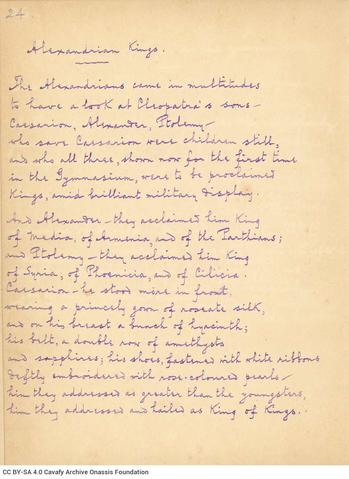 24
Alexandrian Kings.
The Alexandrians came in multitudes
to have a look at Cleopatra's sons—
Caesarion, Alexander, Ptolemy—
who save Caesarion were children still,
and who all three, shown now for the first time
in the Gymnasium, were to be proclaimed
Kings, amid brilliant military display.
And Alexander—they acclaimed him King
of Media, of Armenia, and of the Parthians;
and Ptolemy—they acclaimed him King
of Syria, of Phoenicia, and of Cilicia.
Caesarion—he stood more in front,
wearing a princely gown of roseate silk,
and on his breast a bunch of hyacinth;
his belt, a double row of amethysts
and sapphires; his shoes, fastened with white ribbons
deftly embroidered with rose-coloured pearls—
him they addressed as greater than the youngsters,
him they addressed and hailed as King of Kings.
CC BY-SA 4.0 Cavafy Archive Onassis Foundation